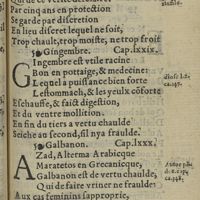 Par cinq ans en protection
Se garde par discretion
En lieu discret lequel ne soit,
Trop chault, trop moiste, ne trop froit
Gingembre. Cap. lxxix.
Gingembre est vtile racine
Bon en pottaige, & medecine:
Lequel a puissance bien forte
Lestommach, & les yeulx cōforte
Eschauffe, & faict digestion,
Et du ventre mollition.
En fin du tiers a vertu chaulde
Seiche au second, sil nya fraulde.
Galbanon. Cap. lxxx.
AZad, Alterma Arabicque
Maratetos en Grecanicque,
Galbanon est de vertu chaulde,
Qui de faire vriner ne fraulde:
Aux cas feminins sapproprie,